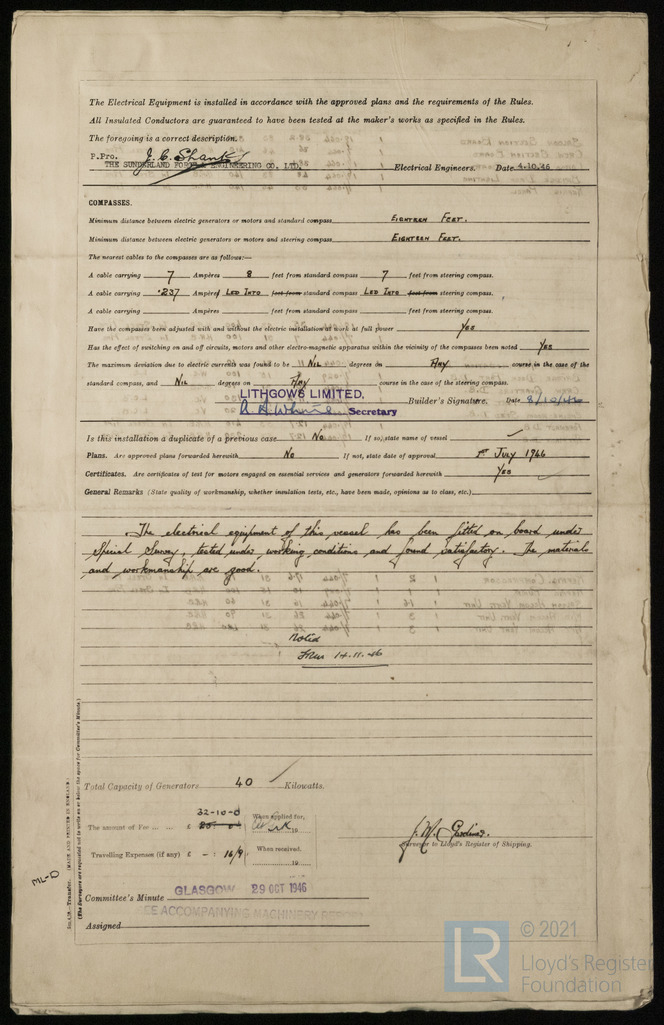 The Electrical Equipment is installed in accordance with the approved plans and the requirements of the Rules.
All Insulated Conductors are guaranteed to have been tested at the maker's works as specified in the Rules.
The foregoing is a correct description.
P. Pro. J. C. Shanks
THE SUNDERLAND FORGE & ENGINEERING CO. LTD. Electrical Engineers. Date 4.10.46
COMPASSES.
Minimum distance between electric generators or motors and standard compass EIGHTEEN FEET.
Minimum distance between electric generators or motors and steering compass EIGHTEEN FEET.
The nearest cables to the compasses are as follows:—
A cable carrying 7 Ampères 8 feet from standard compass 7 feet from steering compass.
A cable carrying .237 Ampères LED INTO feet from standard compass LED INTO feet from steering compass.
A cable carrying Ampères feet from standard compass feet from steering compass.
Have the compasses been adjusted with and without the electric installation at work at full power YES
Has the effect of switching on and off circuits, motors and other electro-magnetic apparatus within the vicinity of the compasses been noted YES
The maximum deviation due to electric currents was found to be NIL degrees on ANY course in the case of the
standard compass, and NIL degrees on ANY course in the case of the steering compass.
LITHGOWS LIMITED.
Secretary Builder's Signature. Date 8/10/46
Is this installation a duplicate of a previous case No If so, state name of vessel
Plans. Are approved plans forwarded herewith No If not, state date of approval 1st JULY 1946
Certificates. Are certificates of test for motors engaged on essential services and generators forwarded herewith YES
General Remarks (State quality of workmanship, whether insulation tests, etc., have been made, opinions as to class, etc.)
The electrical equipment of this vessel has been fitted on board under
Special Survey, tested under working conditions and found satisfactory. The materials
and workmanship are good.
Noted
14.11.46
Total Capacity of Generators 40 Kilowatts.
32-10-0
The amount of Fee ... ... £ When applied for,
19
Travelling Expenses (if any) £ - : 16/9 When received,
19
J. W. Gardiner.
Surveyor to Lloyd's Register of Shipping.
Committee's Minute GLASGOW 29 OCT 1946
SEE ACCOMPANYING MACHINERY REPORT
Assigned
(MADE AND PRINTED IN ENGLAND.)
(The Surveyors are requested not to write on or below the space for Committee's Minute.)
© 2021
LR
Lloyd's Register
Foundation